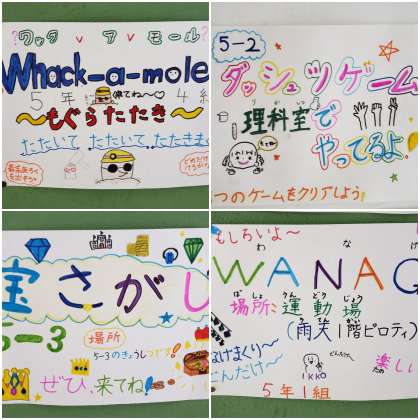 ?ワック ア モール?
Whack-a-mole
5年 来てね～♡ 4組
～もぐらたたき～
たたいて たたいて たたきま
5-2
ダッシュツゲーム
理科室で
やってるよ
つのゲームをクリアしよう
宝さがし
5-3
場所
5-3のきょうしつです!
ぜひ、来てね!
もしろいよ～
わ な げ
WANAG
場所: 運動場
ばしょ うんどうじょう
(雨天1階ピロティ)
なげまくり～
どんだけ～
IKKO
どんだけ～
楽しい
5年1組